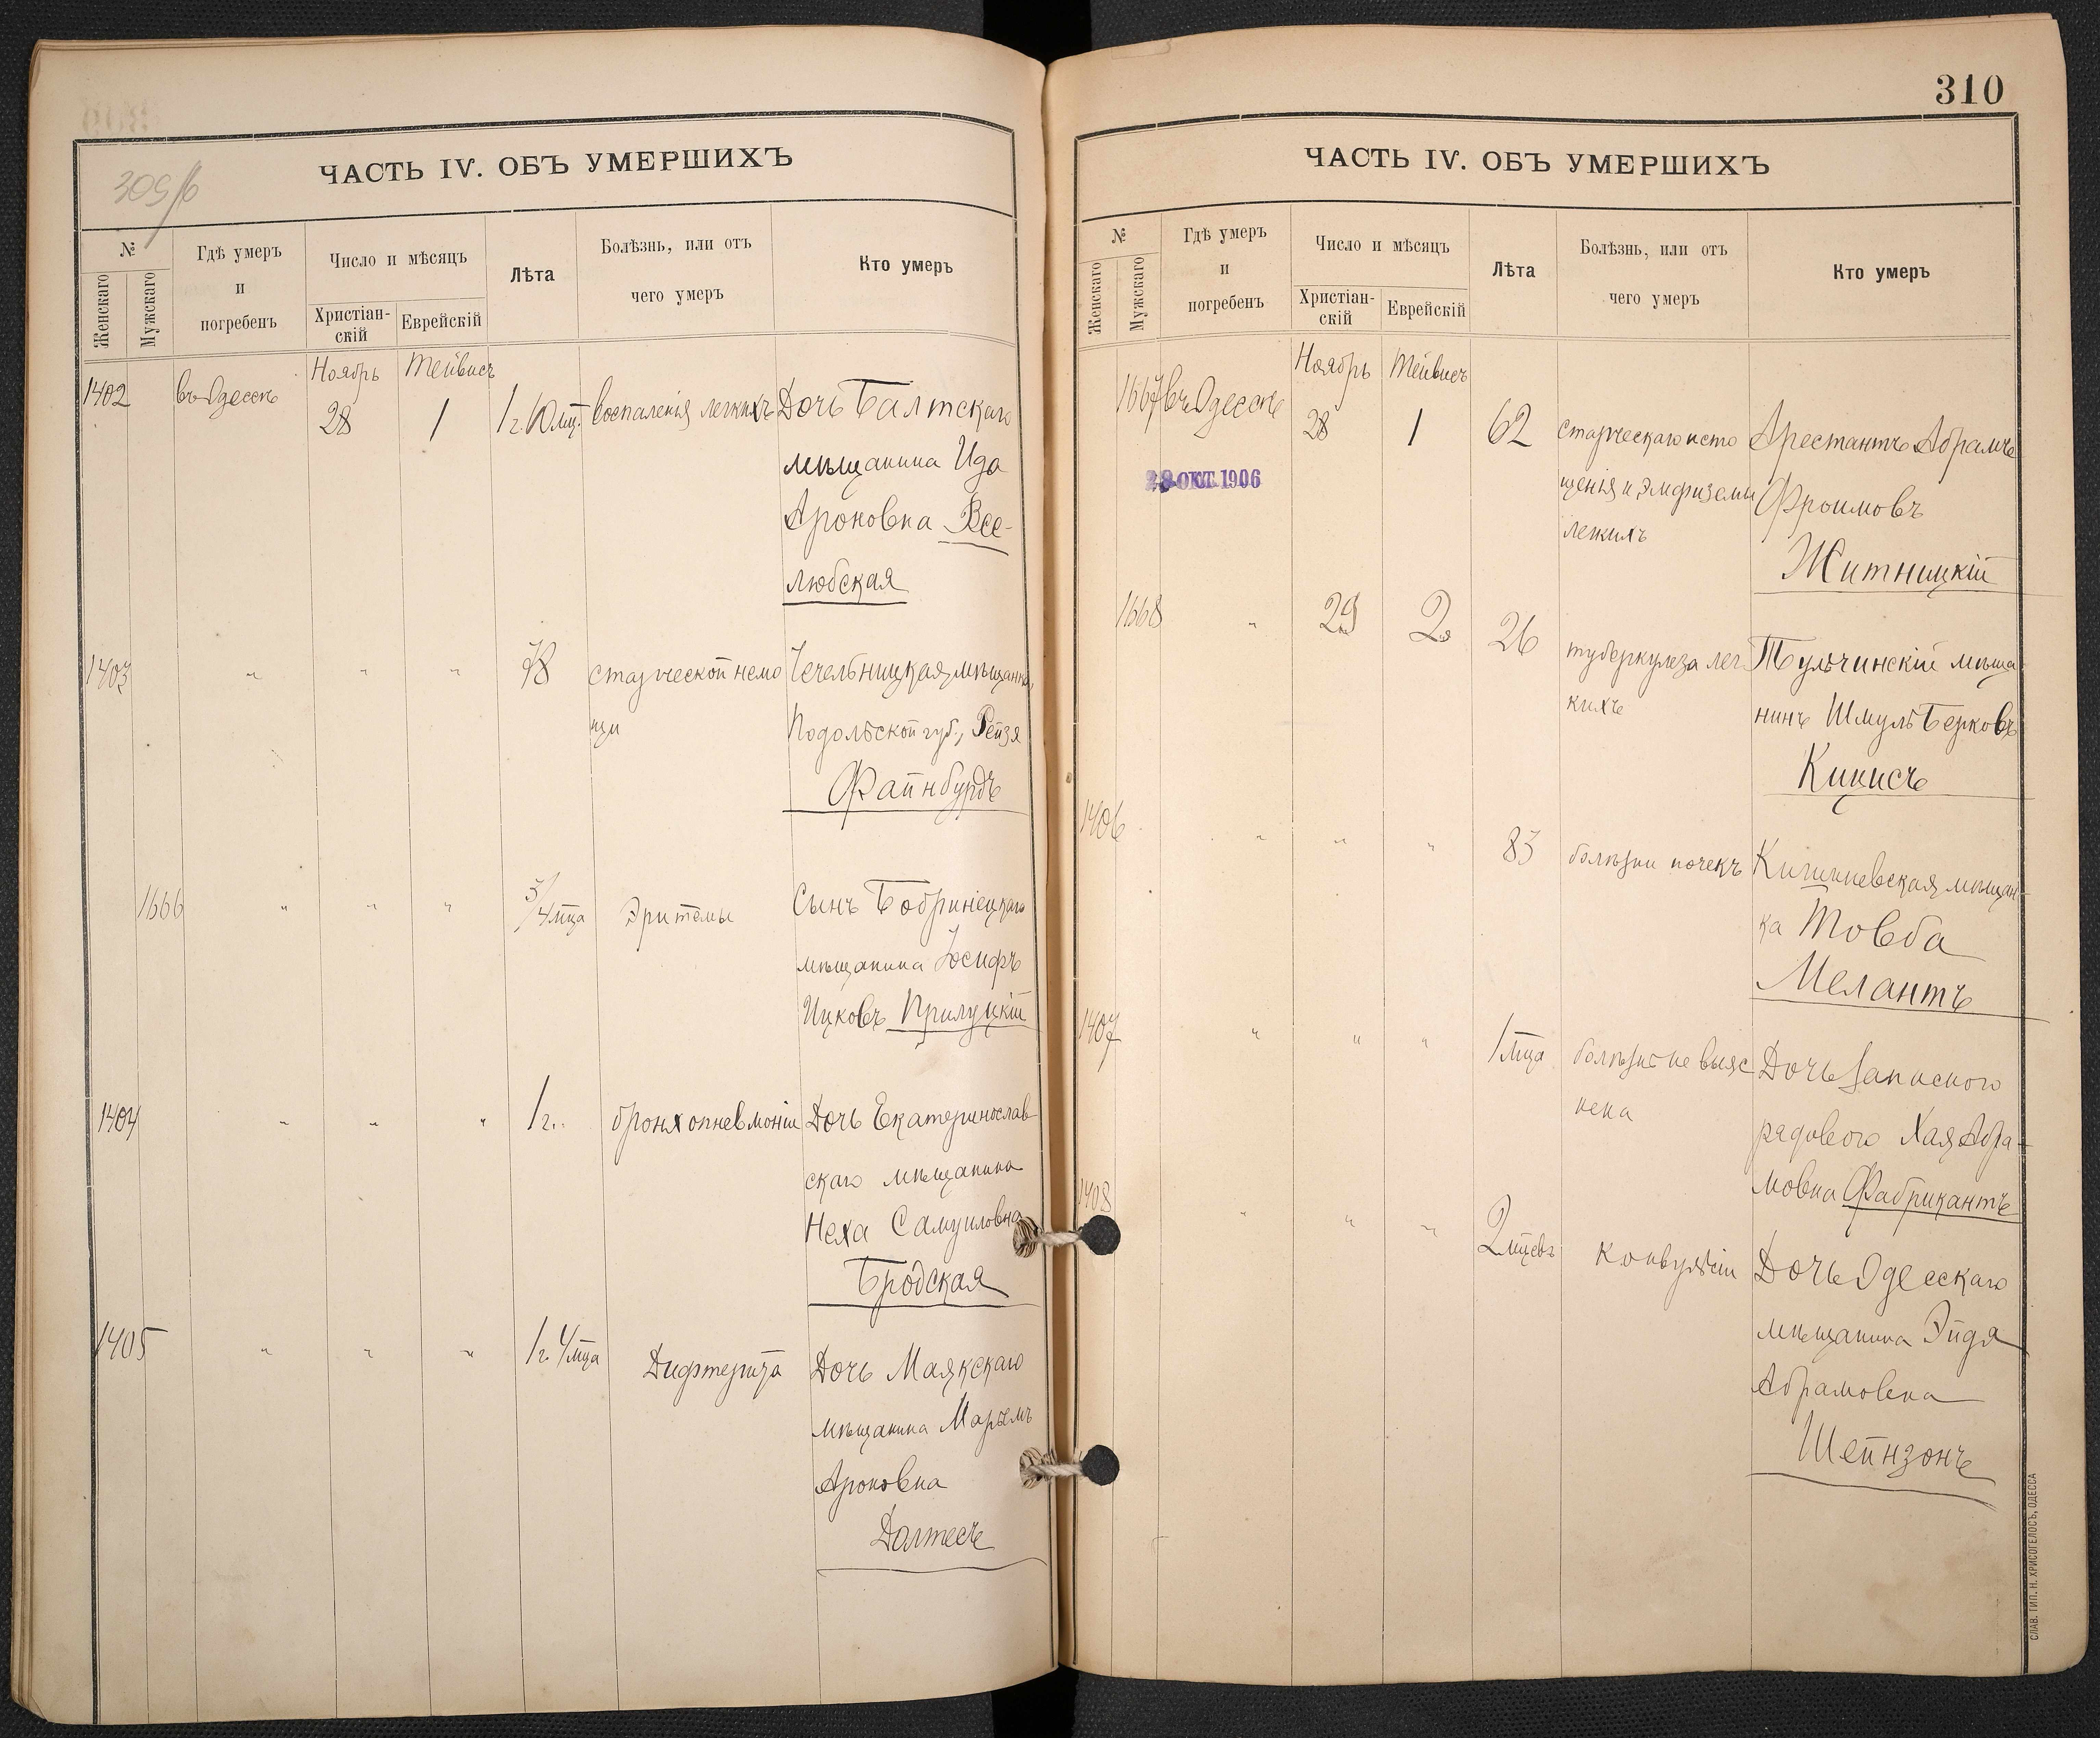 309/б
ЧАСТЬ IV. ОБЪ УМЕРШИХЪ
№
Женскаго
Мужскаго
Гдѣ умеръ
и
погребенъ
Число и мѣсяцъ
Христіан-
скій
Еврейскій
Лѣта
Болѣзнь, или отъ
чего умеръ
Кто умеръ
Ноябрь Тейвисъ
1402 въ Одессѣ 28 1 1 г. 10 мц. воспаленія легкихъ Дочь Балтскаго
мѣщанина Ида
Ароновна Все-
любская
1403 " " " 78 старческой немо Чечельницкая мѣщанка,
щи Подольской губ., Рейзя
Файнбурдъ
1666 " " " 3/4 мца Эритемы Сынъ Бобринецкаго
мѣщанина Іосифъ
Ицковъ Прилуцкій
1404 " " " 1 г. бронхопневмоніи Дочь Екатеринослав
скаго мѣщанина
Неха Самуиловна
Бродская
1405 " " " 1 г. 4 мца Дифтерита Дочь Маякскаго
мѣщанина Марьемъ
Ароновна
Долтесъ
310
ЧАСТЬ IV. ОБЪ УМЕРШИХЪ
№
Женскаго
Мужскаго
Гдѣ умеръ
и
погребенъ
Число и мѣсяцъ
Христіан-
скій
Еврейскій
Лѣта
Болѣзнь, или отъ
чего умеръ
Кто умеръ
Ноябрь Тейвисъ
1667 въ Одессѣ 28 1 62 старческаго исто Арестантъ Абрамъ
ОКТ. 1906
щенія и эмфиземы Фроимовъ
легкихъ
Житницкій
1668 " 29 2 26 туберкулеза лег Тульчинскій мѣща
кихъ нинъ Шмуль Берковъ
Кицисъ
1406 " " " 83 болѣзни почекъ Кишиневская мѣщан-
ка Товба
Мелантъ
1407 " " " 1 мца болѣзнь не выяс Дочь Запаснаго
нена рядового Хая Абра-
мовна Фабрикантъ
1408 " " " 2 мцевъ конвульсіи Дочь Одесскаго
мѣщанина Эйдя
Абрамовна
Шейнзонъ
СЛАВ. ТИП. Н. ХРИСОГЕЛОСЪ, ОДЕССА